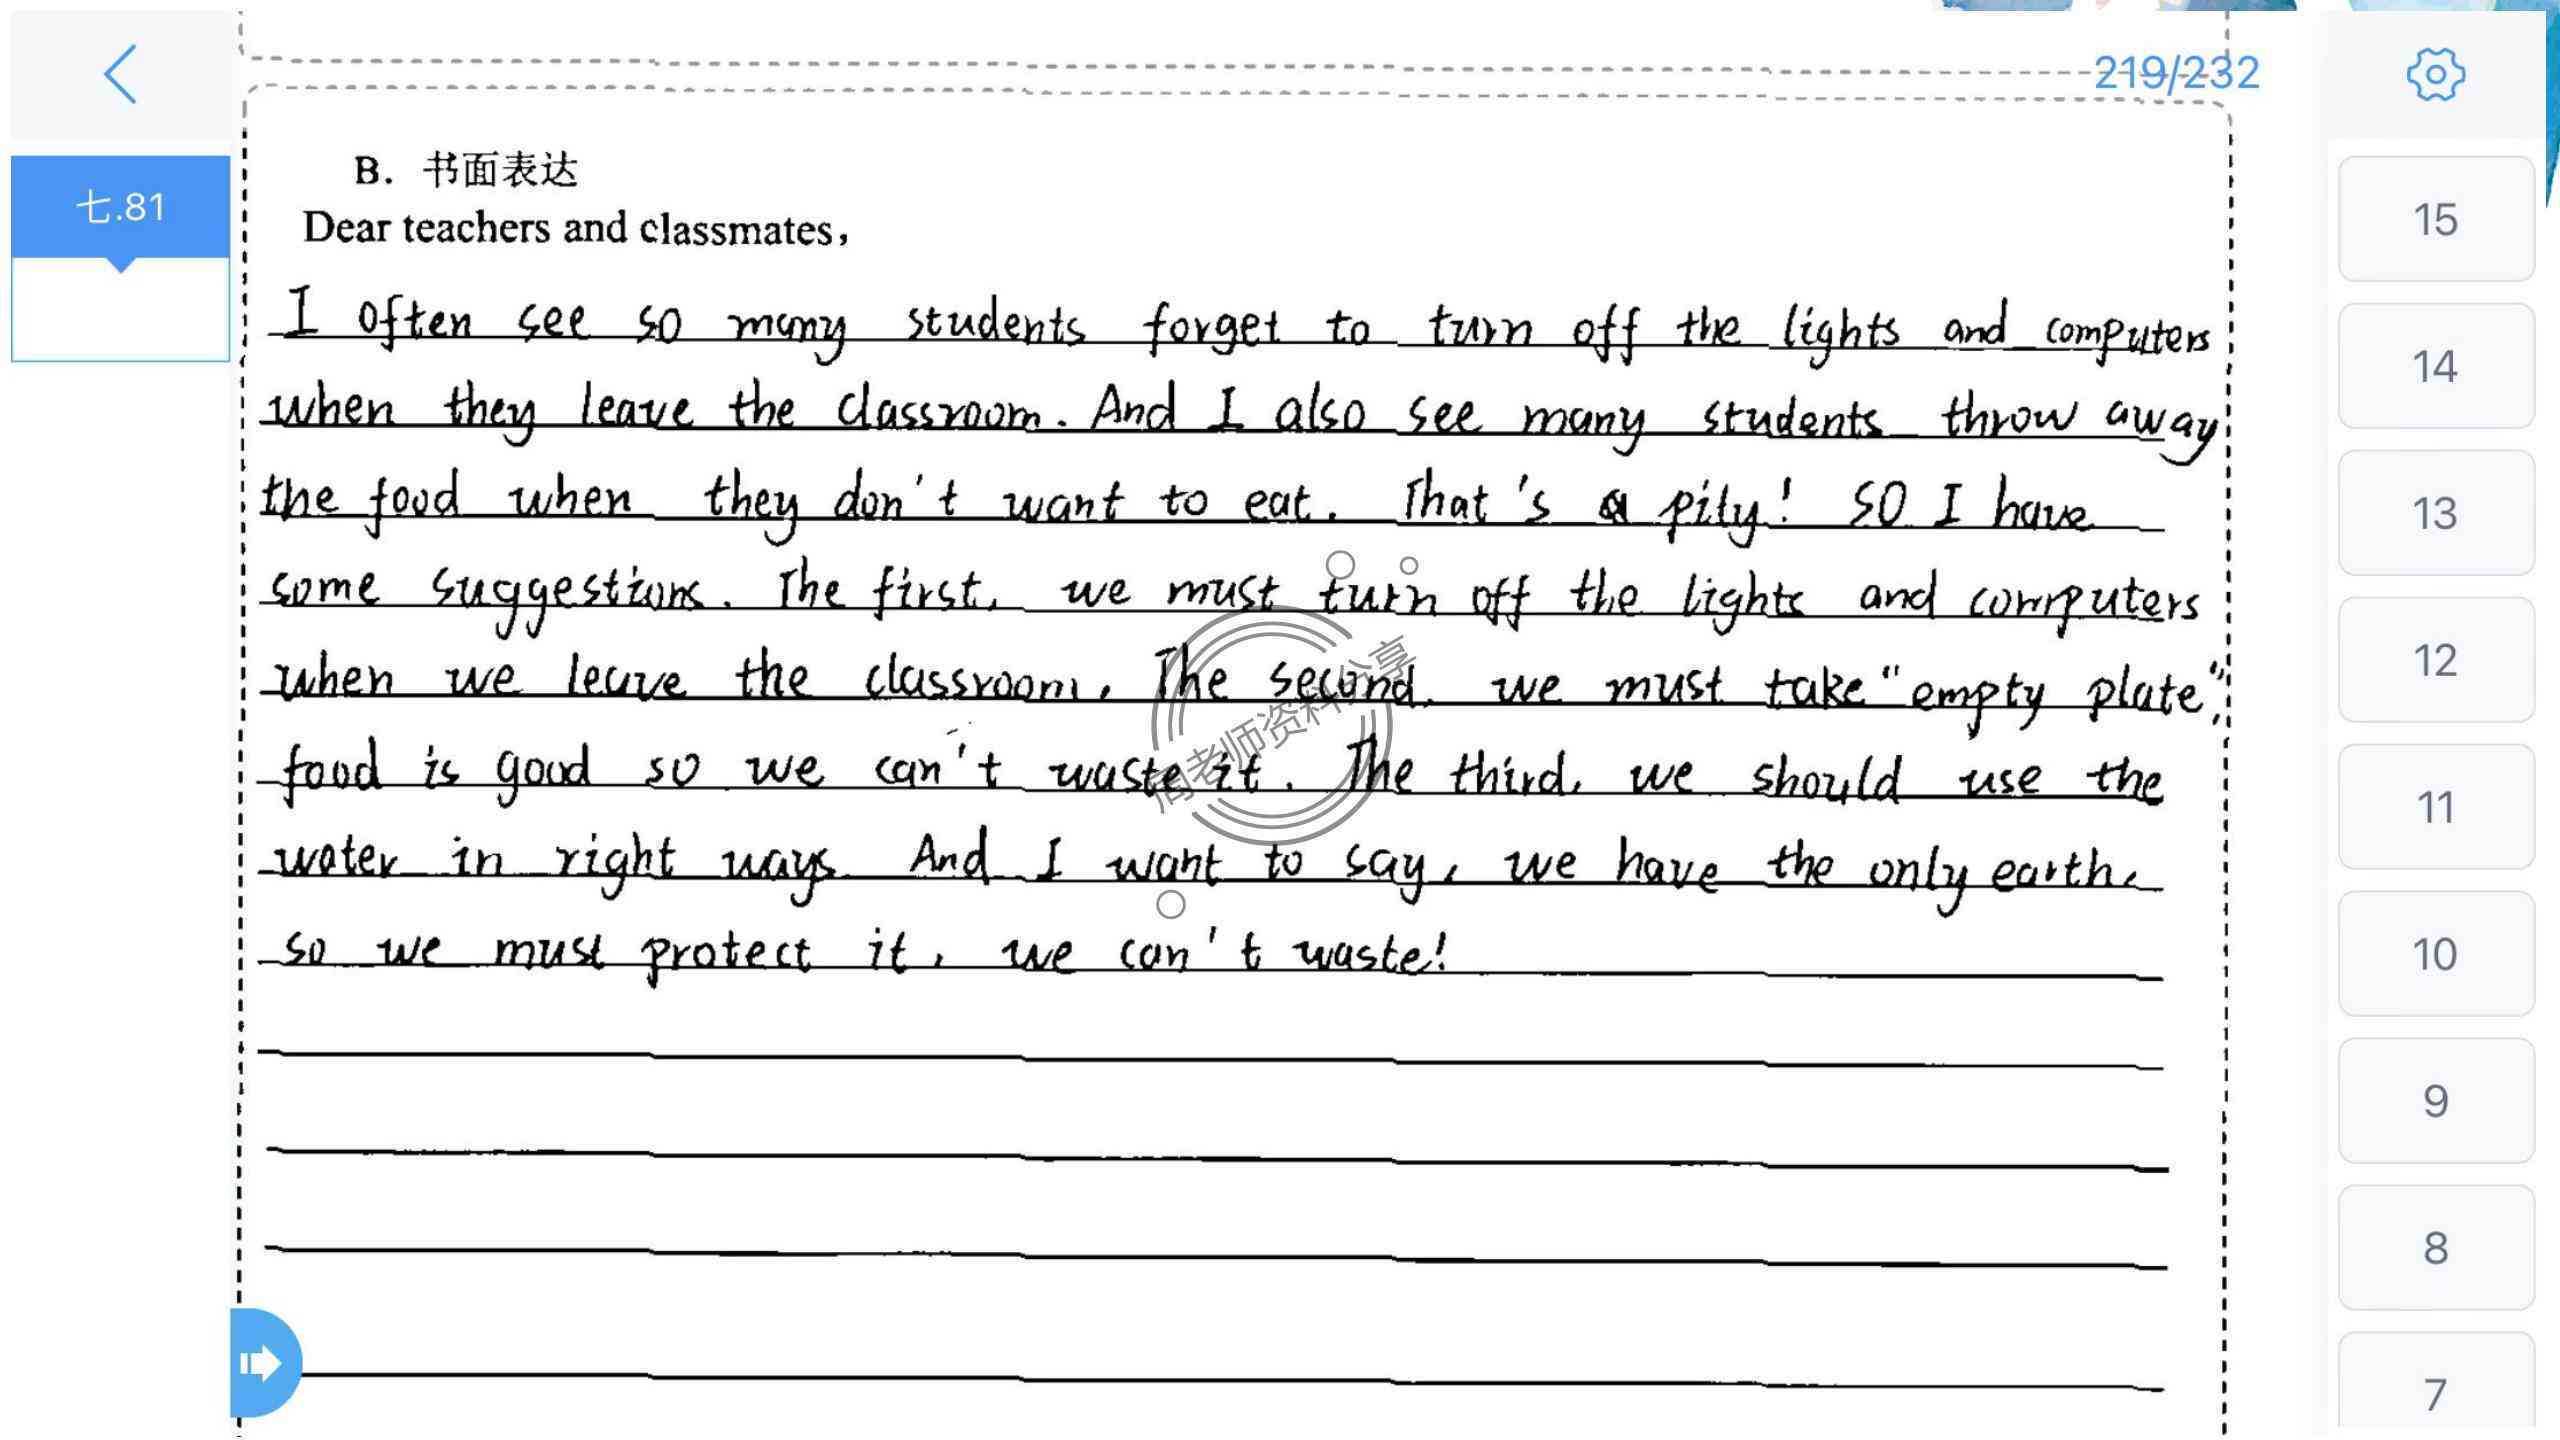 219/232
七.81
B. 书面表达
Dear teachers and classmates,
I often see so many students forget to turn off the lights and computers
when they leave the classroom. And I also see many students throw away
the food when they don't want to eat. That's a pity! SO I have
some suggestions. The first, we must turn off the lights and computers
when we leave the classroom. The second, we must take "empty plate",
food is good so we can't waste it. The third, we should use the
water in right ways. And I want to say, we have the only earth,
so we must protect it, we can't waste!
周老师资料分享
15
14
13
12
11
10
9
8
7